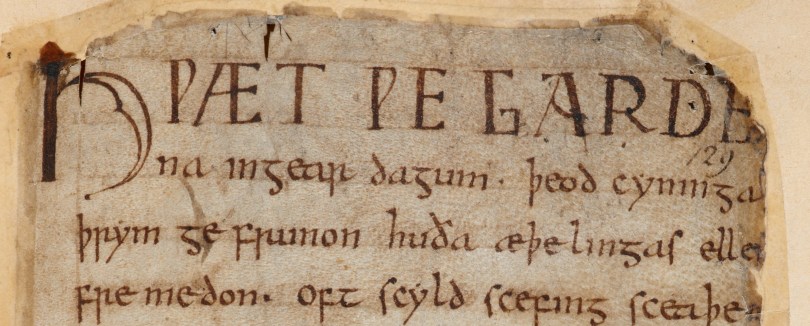 HǷÆT ǷE GARDE
129
na ingear dagum. þeod cyninga
þrym ge frunon huða æþelingas elle
fremedon. oft scyld scefing sceaþe